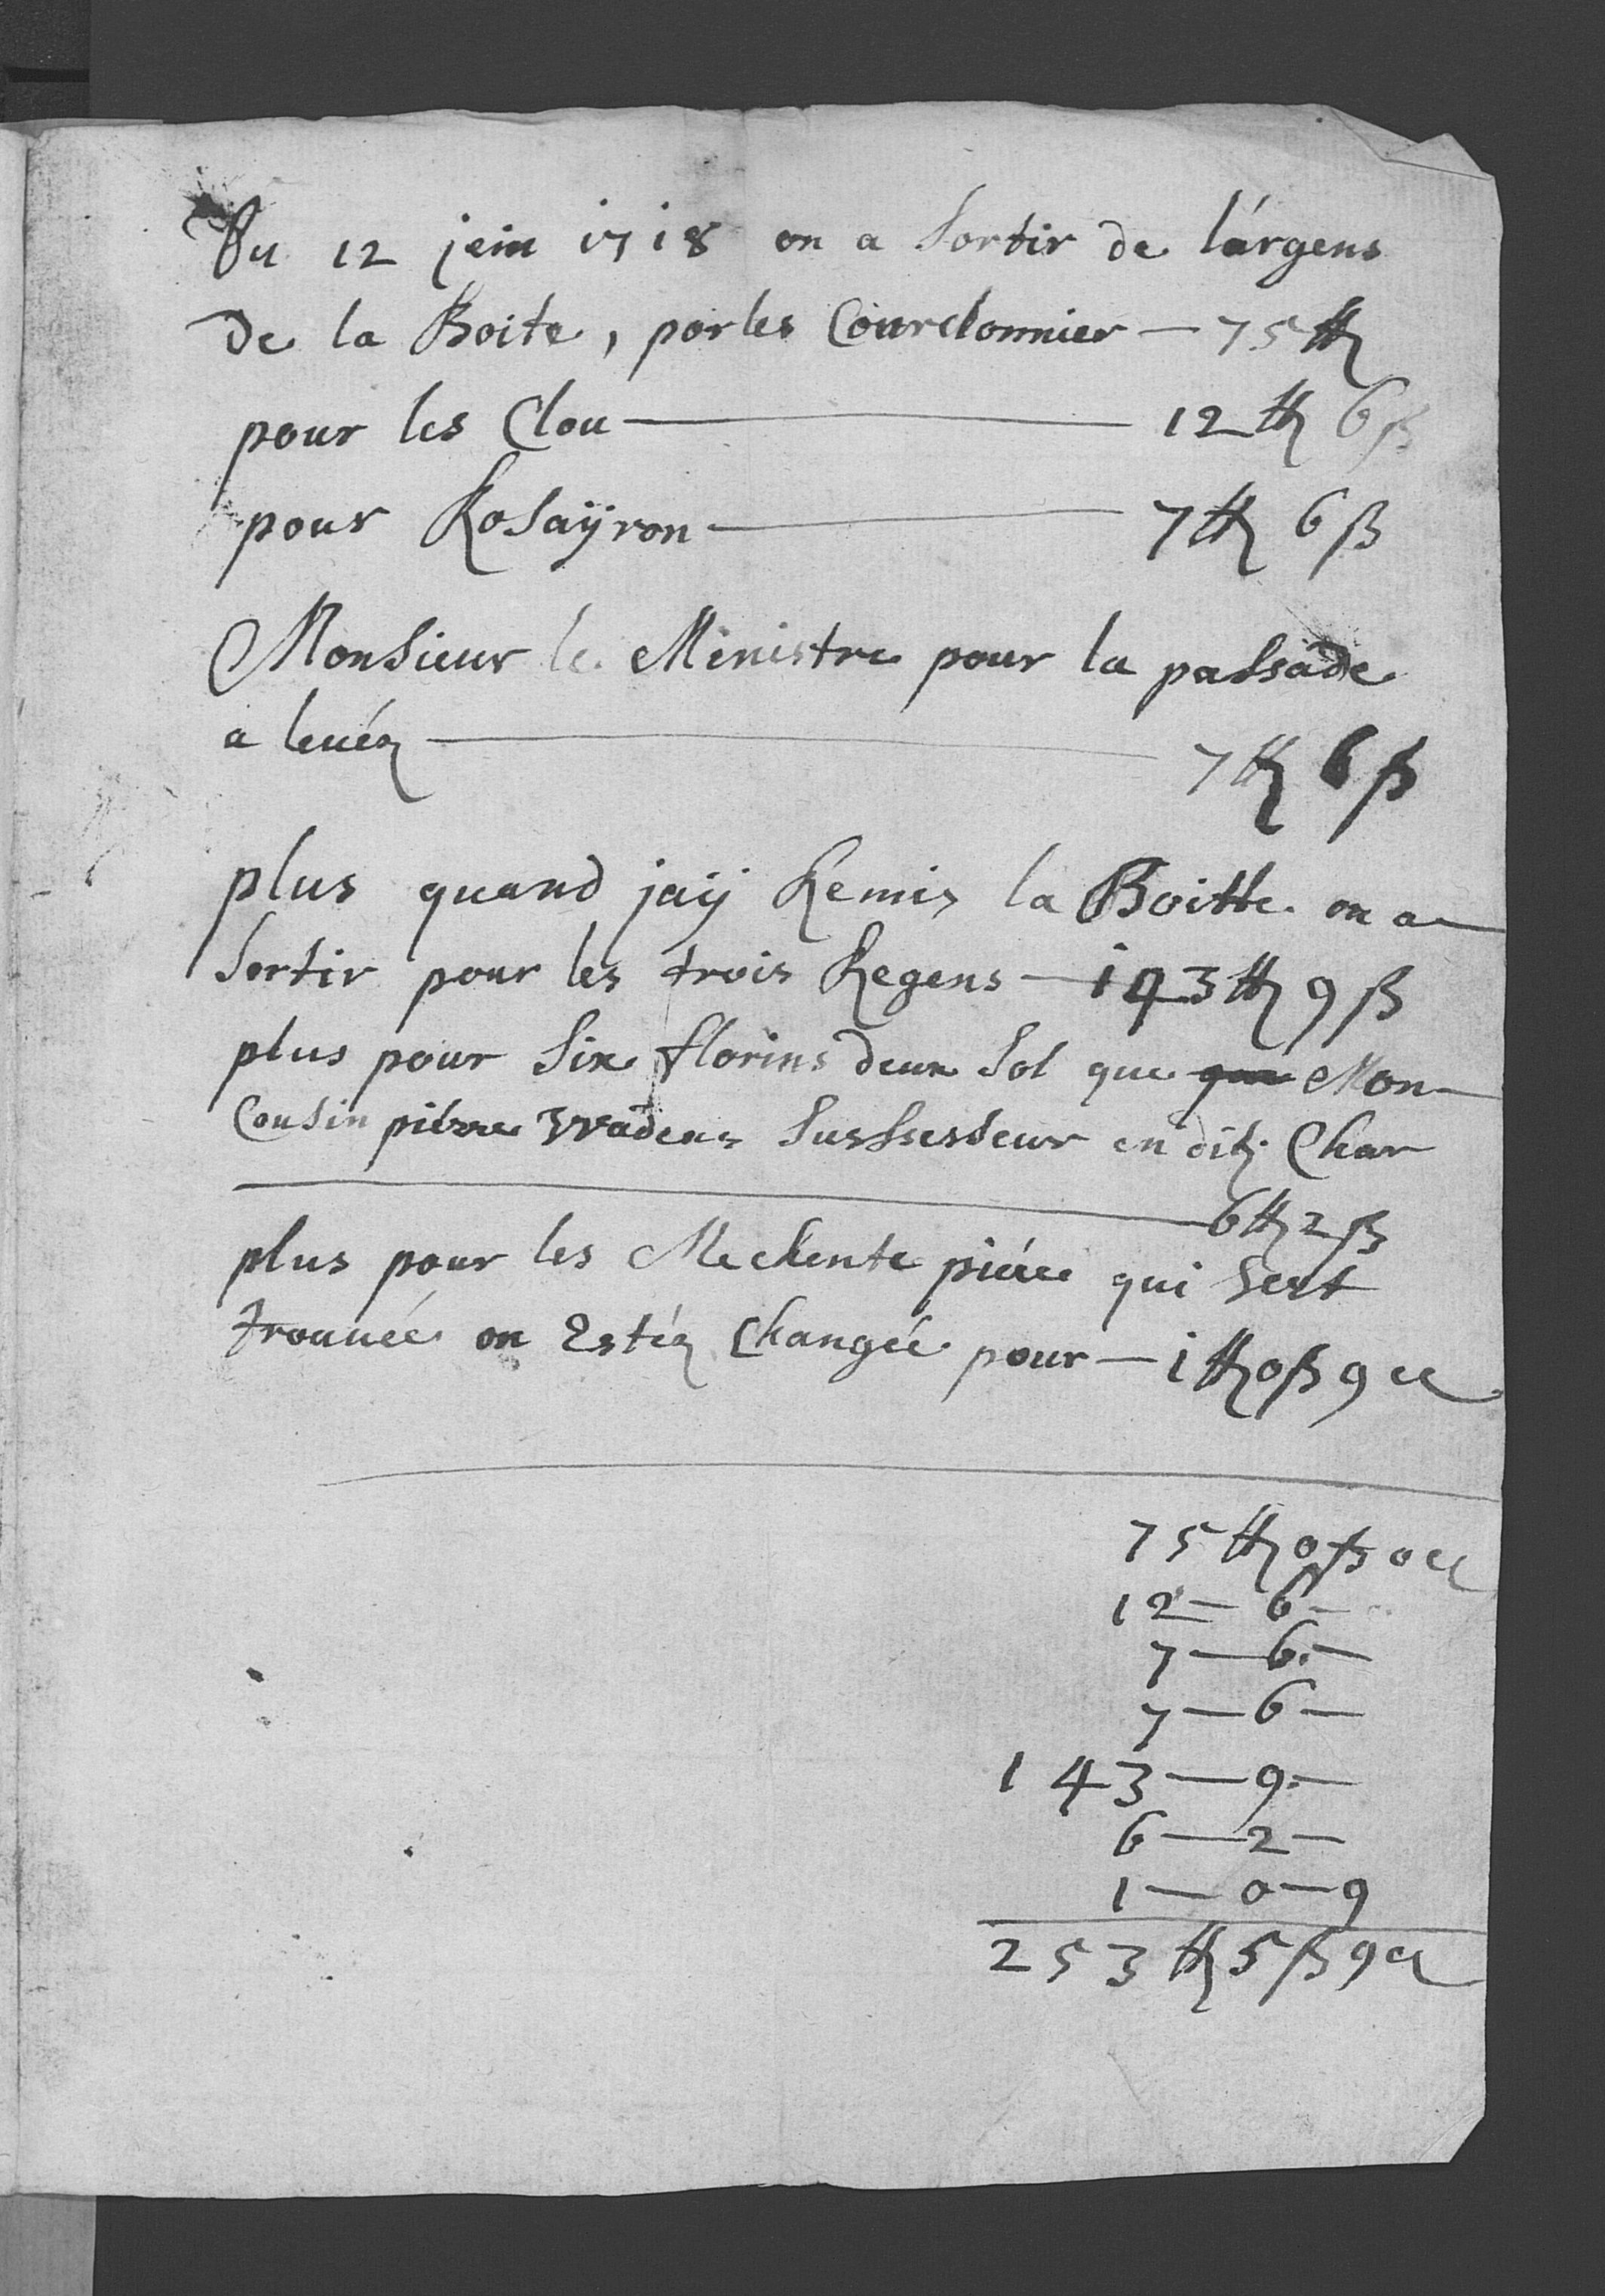 Du 12 jein 1718 on a sortir de lárgens
de la Boite, por les Courdonnier — 75 ₶
pour les Clou — 12 ₶ 6 ß
pour Rosaÿron — 7 ₶ 6 ß
Monsieur le Ministre pour la passade
a leuéz — 7 ₶ 6 ß
plus quand jaÿ Remis la Boitte on a
sortir pour les trois Regens — 143 ₶ 9 ß
plus pour six florins deux sol que que Mon
Cousin piérre sussesseur en dit Char
— 6 ₶ 2 ß
plus pour les Mechente piéce qui sest
trouuéé on Estéz Changéé pour — 1 ₶ 0 ß 9
75 ₶ 0 ß 0
12 — 6 —
7 — 6 —
7 — 6 —
143 — 9 —
6 — 2 —
1 — 0 — 9
253 ₶ 5 ß 9